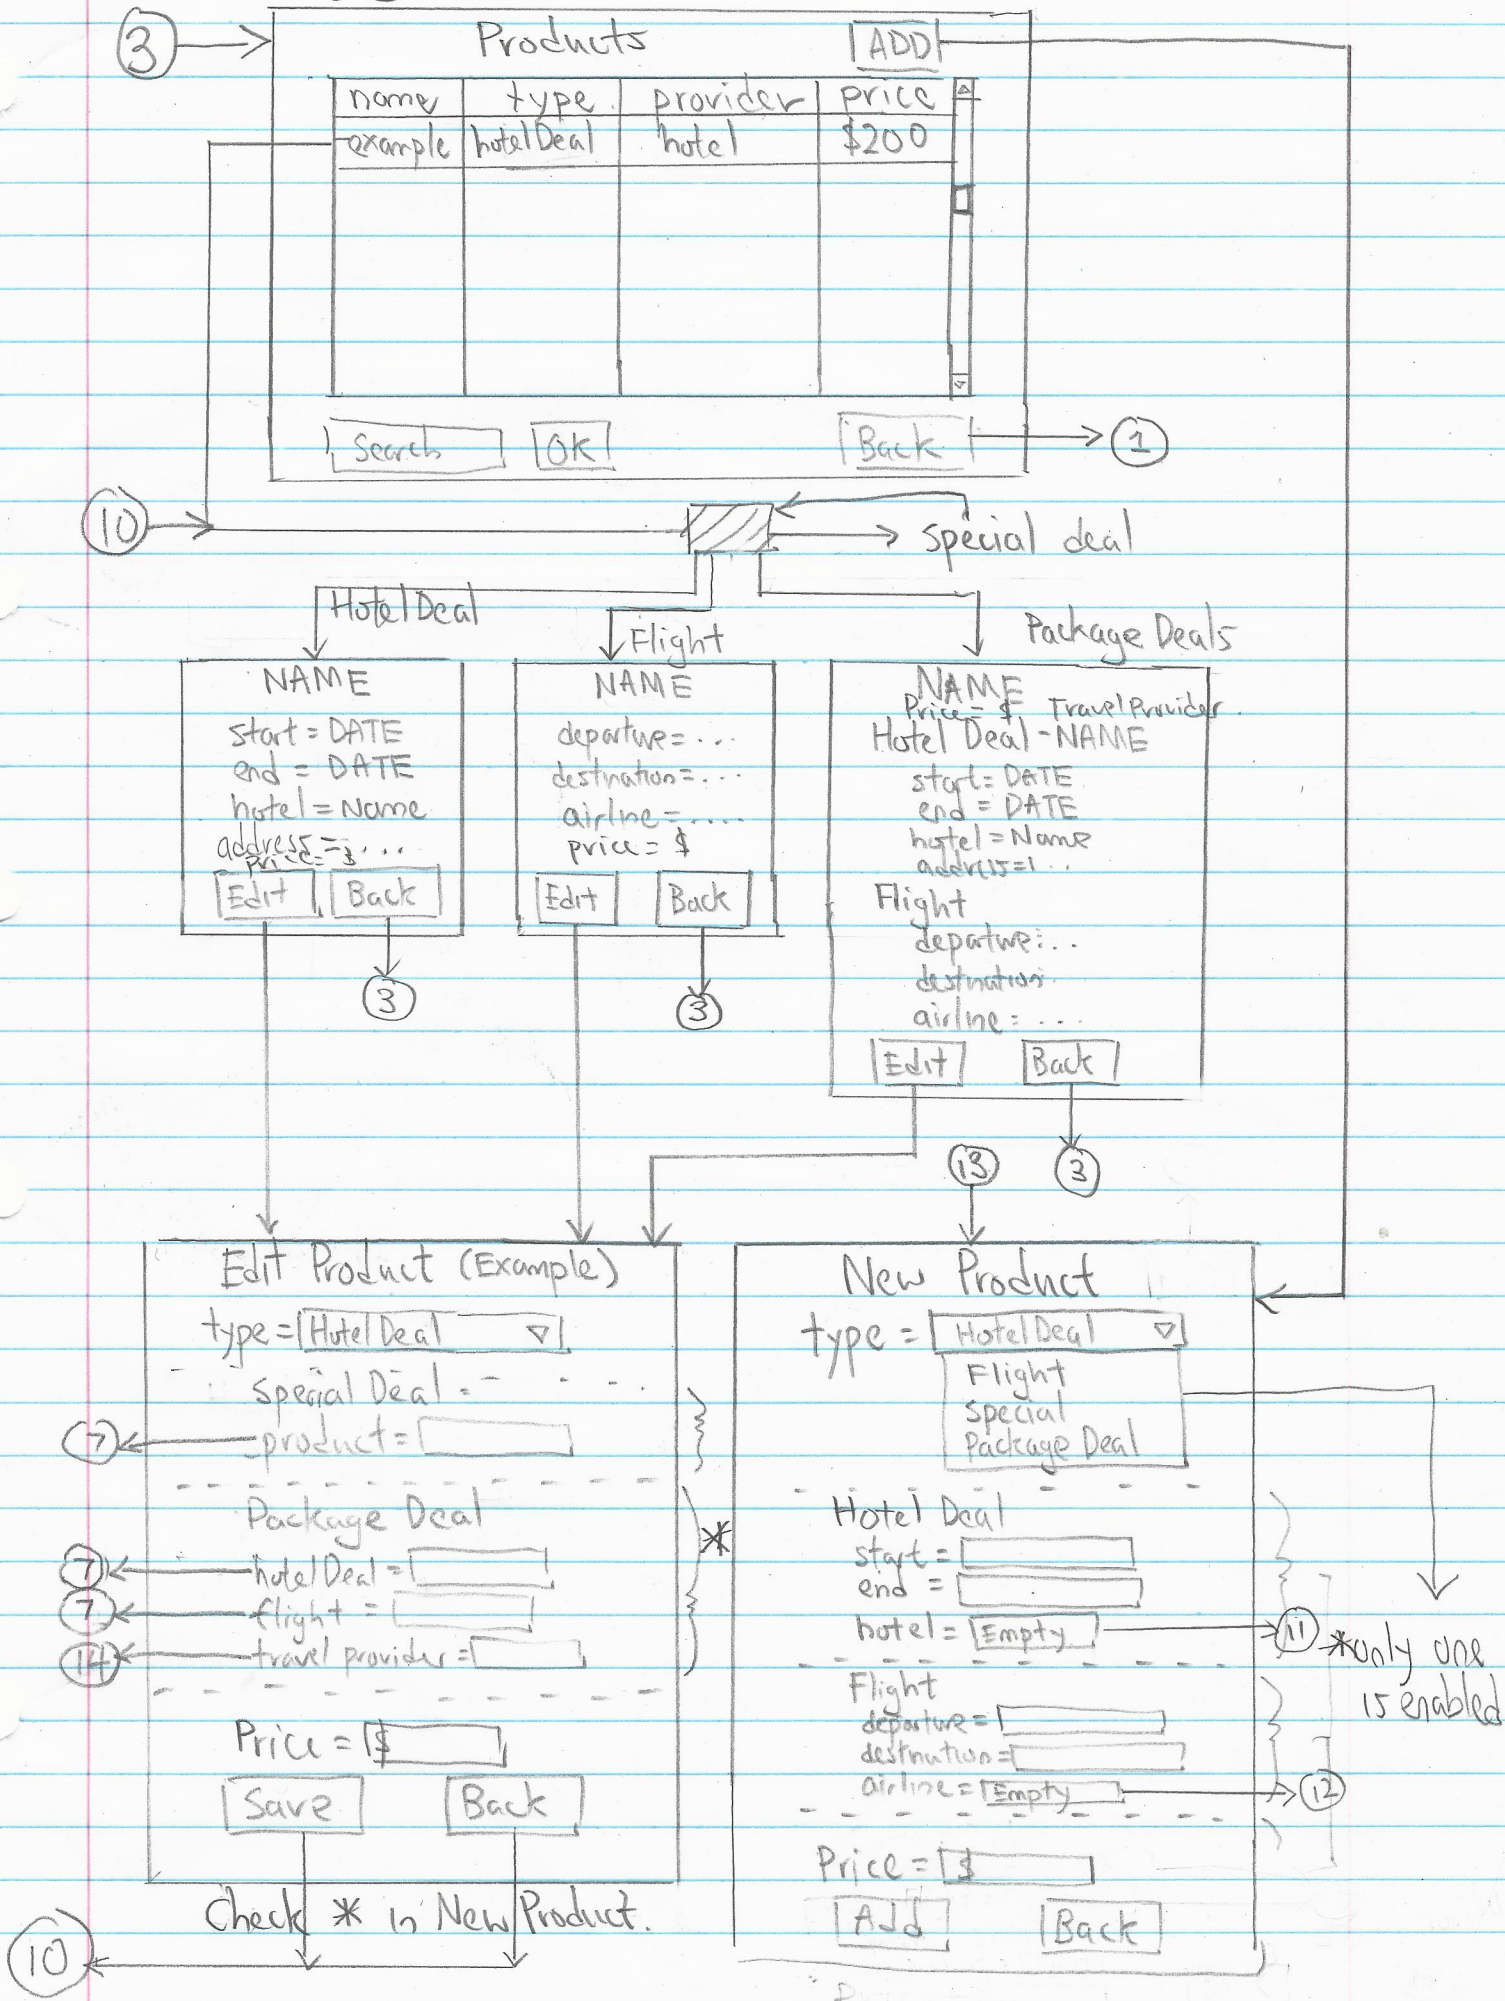 3 Products ADD
name type provider price
example hotelDeal hotel $200
Search OK Back 1
10 special deal
HotelDeal Flight Package Deals
NAME
start = DATE
end = DATE
hotel = Name
address = ...
price = $
Edit Back
3
NAME
departure = ...
destination = ...
airline = ....
price = $
Edit Back
3
NAME
Price = $ TravelProvider.
Hotel Deal - NAME
start = DATE
end = DATE
hotel = Name
address = ...
Flight
departure: ..
destination:
airline = ....
Edit Back
13 3
Edit Product (Example)
type = HotelDeal
Special Deal =
7 product =
Package Deal
7 hotelDeal =
7 flight =
14 travel provider =
*
Price = $
Save Back
Check * in New Product.
10
New Product
type = HotelDeal
Flight
Special
Package Deal
Hotel Deal
start =
end =
hotel = Empty 11
*only one
is enabled
Flight
departure =
destination =
airline = Empty 12
Price = $
Add Back